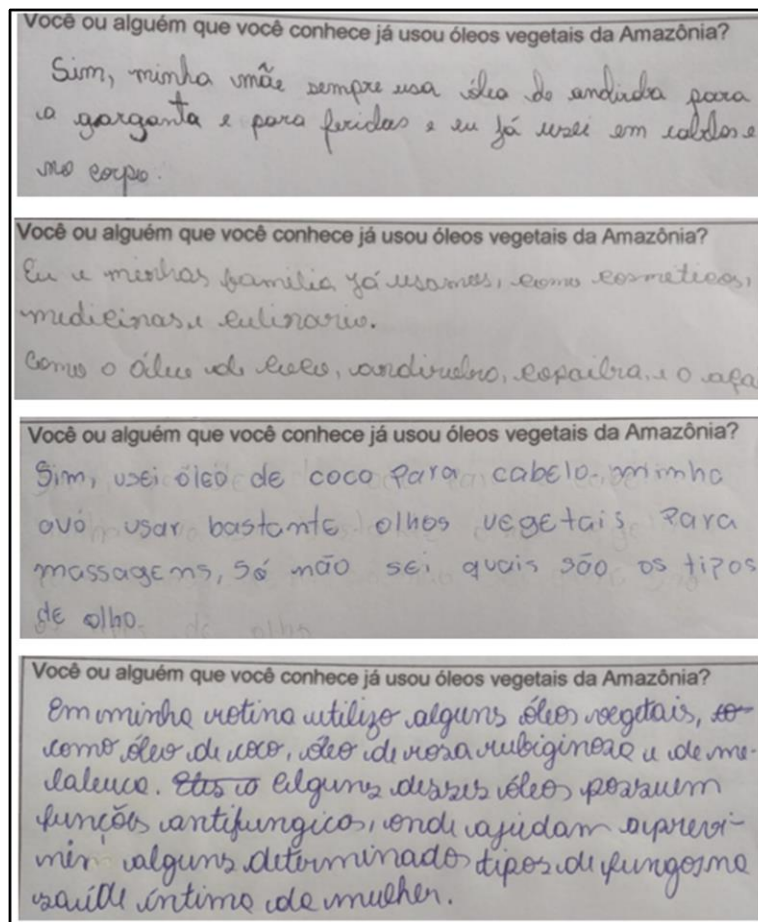 Você ou alguém que você conhece já usou óleos vegetais da Amazônia?
Sim, minha mãe sempre usa óleo de andiroba para
a garganta e para feridas e eu já usei em cabelos e
no corpo.
Você ou alguém que você conhece já usou óleos vegetais da Amazônia?
Eu e minhas família já usamos, como cosméticos,
medicinas e culinario.
Como o óleo de coco, andiroba, copaíba, e o aça
Você ou alguém que você conhece já usou óleos vegetais da Amazônia?
Sim, usei óleo de coco para cabelo. minha
avó usar bastante olhos vegetais para
massagens, só não sei quais são os tipos
de olho.
Você ou alguém que você conhece já usou óleos vegetais da Amazônia?
Em minha rotina utilizo alguns óleos vegetais,
como óleo de coco, óleo de rosa rubiginosa e de me-
laleuca. Alguns desses óleos possuem
funções antifungicos, onde ajudam a previ-
nir alguns determinado tipos de fungos na
saúde íntima da mulher.